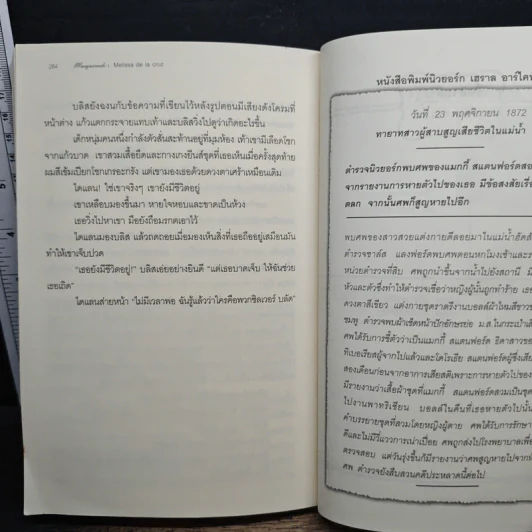 284 Masquerade : Melissa de la cruz
บลิสยังงงนกับข้อความที่เขียนไว้หลังรูปตอนมีเสียงดังโครมที่
หน้าต่าง แก้วแตกกระจายแทบเท้าและบลิสวิ่งไปดูว่าเกิดอะไรขึ้น
เด็กหนุ่มคนหนึ่งกำลังตัวสั่นสะท้านอยู่ที่มุมห้อง เท้าเขามีเลือดโชก
จากแก้วบาด เขาสวมเสื้อยืดและกางเกงยีนส์ชุดที่เธอเห็นเมื่อครั้งสุดท้าย
ผมสีเข้มเปียกโชกเกรอะกรัง แต่เขามองเธอด้วยดวงตาเศร้าเหมือนเดิม
ไดแลน! ใช่เขาจริงๆ เขายังมีชีวิตอยู่
เขาเหลือบมองขึ้นมา หายใจหอบและขาดเป็นห้วง
เธอวิ่งไปหาเขา มือยังถือมรกตเอาไว้
ไดแลนมองบลิส แล้วถดถอยเมื่อมองเห็นสิ่งที่เธอถืออยู่เสมือนมัน
ทำให้เขาเจ็บปวด
"เธอยังมีชีวิตอยู่!" บลิสเอ่ยอย่างยินดี "แต่เธอบาดเจ็บ ให้ฉันช่วย
เธอเถิด"
ไดแลนส่ายหน้า "ไม่มีเวลาพอ ฉันรู้แล้วว่าใครคือพวกซิลเวอร์ บลัด"
หนังสือพิมพ์นิวยอร์ก เฮราล อาร์ไคฟ
วันที่ 23 พฤศจิกายน 1872
ทายาทสาวผู้สาบสูญเสียชีวิตในแม่น้ำ
ตำรวจนิวยอร์กพบศพของแมกกี้ สแตนฟอร์ดสอง
จากรายงานการหายตัวไปของเธอ มีข้อสงสัยเรื่อ
ตลก จากนั้นศพก็สูญหายไปอีก
พบศพของสาวสวยแต่งกายดีลอยมาในแม่น้ำฮัดสั
ตำรวจชาร์ลส แลงฟอร์ดพบศพตอนหกโมงเช้าและร
หน่วยตำรวจที่สิบ ศพถูกนำขึ้นจากน้ำไปยังสถานี มี
หัวและตัวซึ่งทำให้ตำรวจเชื่อว่าหญิงผู้นั้นถูกทำร้าย เธอ
ดวงตาสีเขียว แต่งกายชุดราตรีงานบอลล์ผ้าไหมสีขาวช
ชมพู ตำรวจพบผ้าเช็ดหน้าปักอักษรย่อ ม.ส.ในกระเป๋าเ
ศพได้รับการชี้ตัวว่าเป็นแมกกี้ สแตนฟอร์ด ธิดาสาวขอ
ทิเบอเรียสผู้จากไปแล้วและโดโรเธีย สแตนฟอร์ดผู้ซึ่งเสีย
สองเดือนก่อนจากอาการเสียสติเพราะการหายตัวไปของ
มีรายงานว่าเสื้อผ้าชุดที่แมกกี้ สแตนฟอร์ดสวมเป็นชุด
ไปงานพาทริเชียน บอลล์ในคืนที่เธอหายตัวไปนั้
คำบรรยายชุดที่สวมโดยหญิงผู้ตาย ศพได้รับการรักษา
ดีและไม่มีวี่แววการเน่าเปื่อย ศพถูกส่งไปโรงพยาบาลเพื่อ
ตรวจสอบ แต่วันรุ่งขึ้นก็มีรายงานว่าศพสูญหายไปจากห้
ศพ ตำรวจยังสืบสวนคดีประหลาดนี้ต่อไป